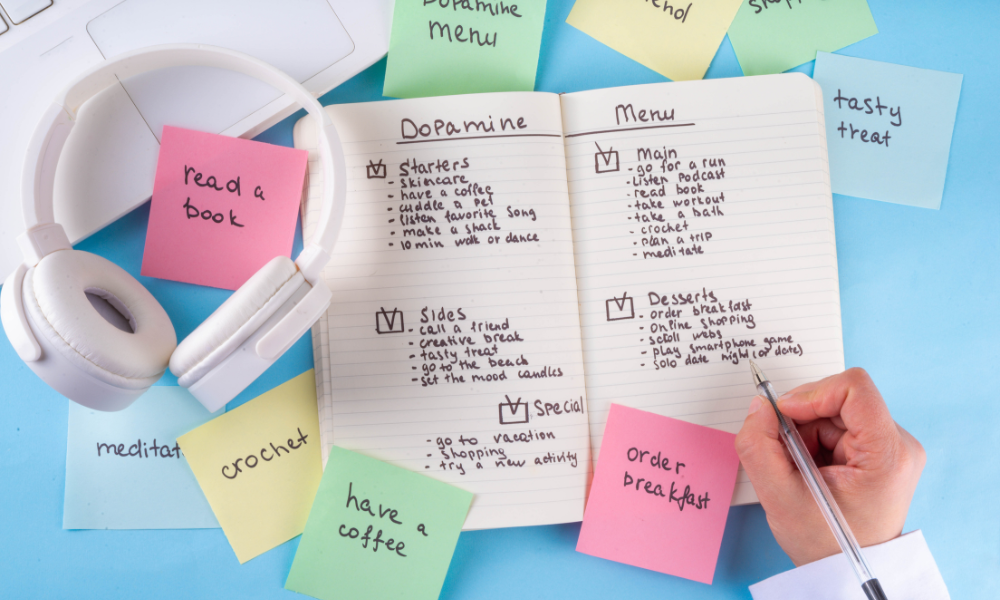 Dopamine
menu
shopp
tasty
treat
read a
book
Dopamine
Starters
- skincare
- have a coffee
- cuddle a pet
- listen favorite song
- make a snack
- 10 min walk or dance
Sides
- call a friend
- creative break
- tasty treat
- go to the beach
- set the mood candles
Special
- go to vacation
- shopping
- try a new activity
Menu
Main
- go for a run
- Listen Podcast
- read book
- take workout
- take a bath
- crochet
- plan a trip
- meditate
Desserts
- order breakfast
- online shopping
- scroll webs
- play smartphone game
- solo date night (or date)
meditat
crochet
have a
coffee
order
breakfast